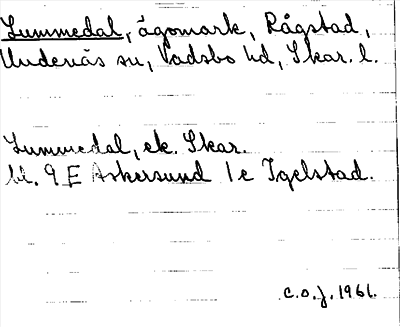 Lummedal, ägomark, Rågstad,
Undenäs sn, Vadsbo hd, Skar. l.
Lummedal, ek. Skar.
bl. 9 E Askersund 1e Igelstad.
c.o.j. 1961.